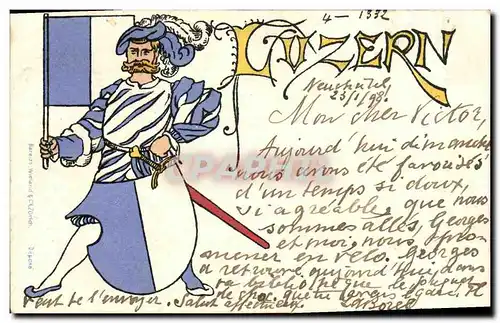 4 - 1332
LUZERN
Neuchâtel,
23/1/98.
Mon cher Victor,
Aujourd'hui dimanche
nous avons été favorisés
d'un temps si doux,
si agréable, que nous
sommes allés, Georges
et moi, nous pro-
mener en vélo. Georges
a retrouvé aujourd'hui, dans
ta bibliothèque le
de
veut te l'envoyer. Salut affectueux.
Borel
Déposé